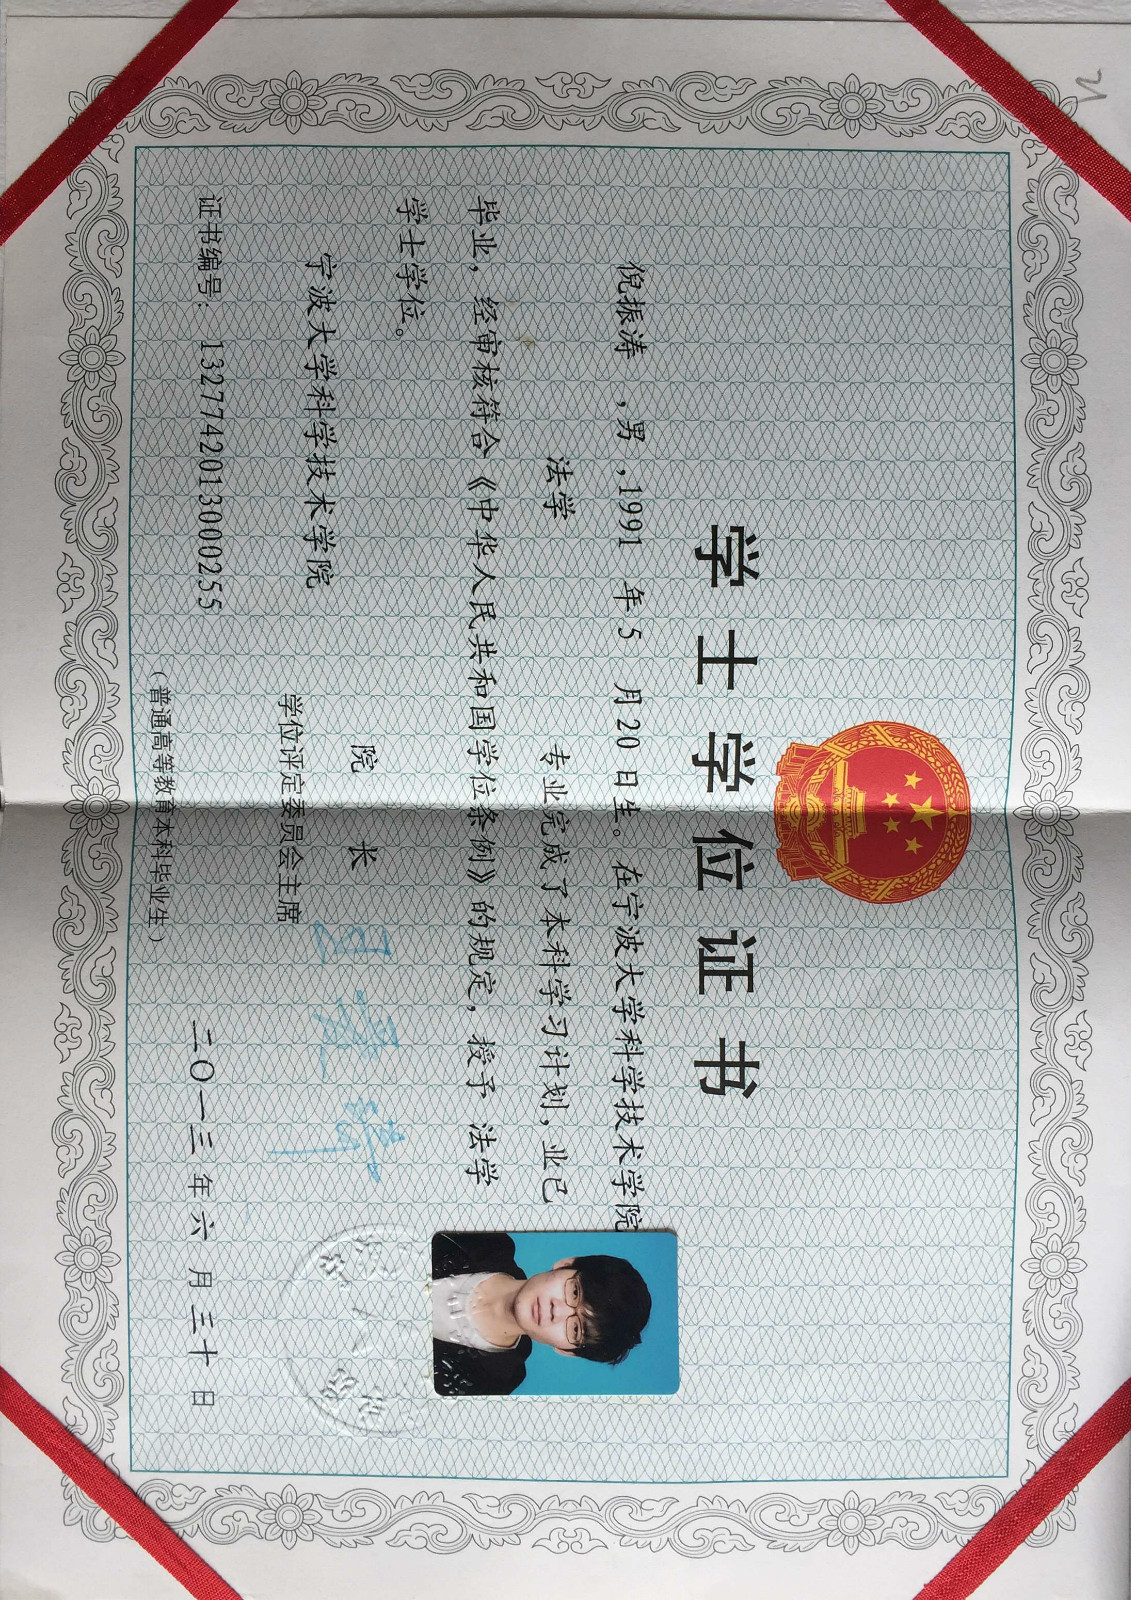 学士学位证书
倪振涛 ,男 ,1991 年 5 月 20 日生。在宁波大学科学技术学院
法学 专业完成了本科学习计划,业已
毕业,经审核符合《中华人民共和国学位条例》的规定,授予 法学
学士学位。
宁波大学科学技术学院
院 长
学位评定委员会主席
证书编号: 1327742013000255
二〇一三 年 六 月 三十 日
(普通高等教育本科毕业生)